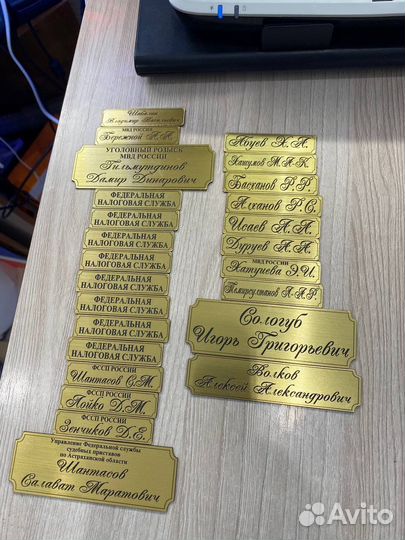 Владимир Васильевич
МВД РОССИИ
Бережной А.А.
УГОЛОВНЫЙ РОЗЫСК
МВД РОССИИ
Гильмутдинов
Дамир Динарович
ФЕДЕРАЛЬНАЯ
НАЛОГОВАЯ СЛУЖБА
ФЕДЕРАЛЬНАЯ
НАЛОГОВАЯ СЛУЖБА
ФЕДЕРАЛЬНАЯ
НАЛОГОВАЯ СЛУЖБА
ФЕДЕРАЛЬНАЯ
НАЛОГОВАЯ СЛУЖБА
ФЕДЕРАЛЬНАЯ
НАЛОГОВАЯ СЛУЖБА
ФЕДЕРАЛЬНАЯ
НАЛОГОВАЯ СЛУЖБА
ФЕДЕРАЛЬНАЯ
НАЛОГОВАЯ СЛУЖБА
ФССП РОССИИ
Шантасов С.М.
ФССП РОССИИ
Лойко Д.М.
ФССП РОССИИ
Зенчиков Д.Е.
Управление Федеральной службы
судебных приставов
по Астраханской области
Шантасов
Салават Маратович
Абуев Х.А.
Хашумов М-А.К.
Басханов Р.Р.
Алханов Р.С.
Исаев А.А.
Дуруев А.А.
МВД РОССИИ
Хатуева Э.И.
Темирсултанов А-А.Р.
Сологуб
Игорь Григорьевич
Волков
Алексей Александрович
Avito